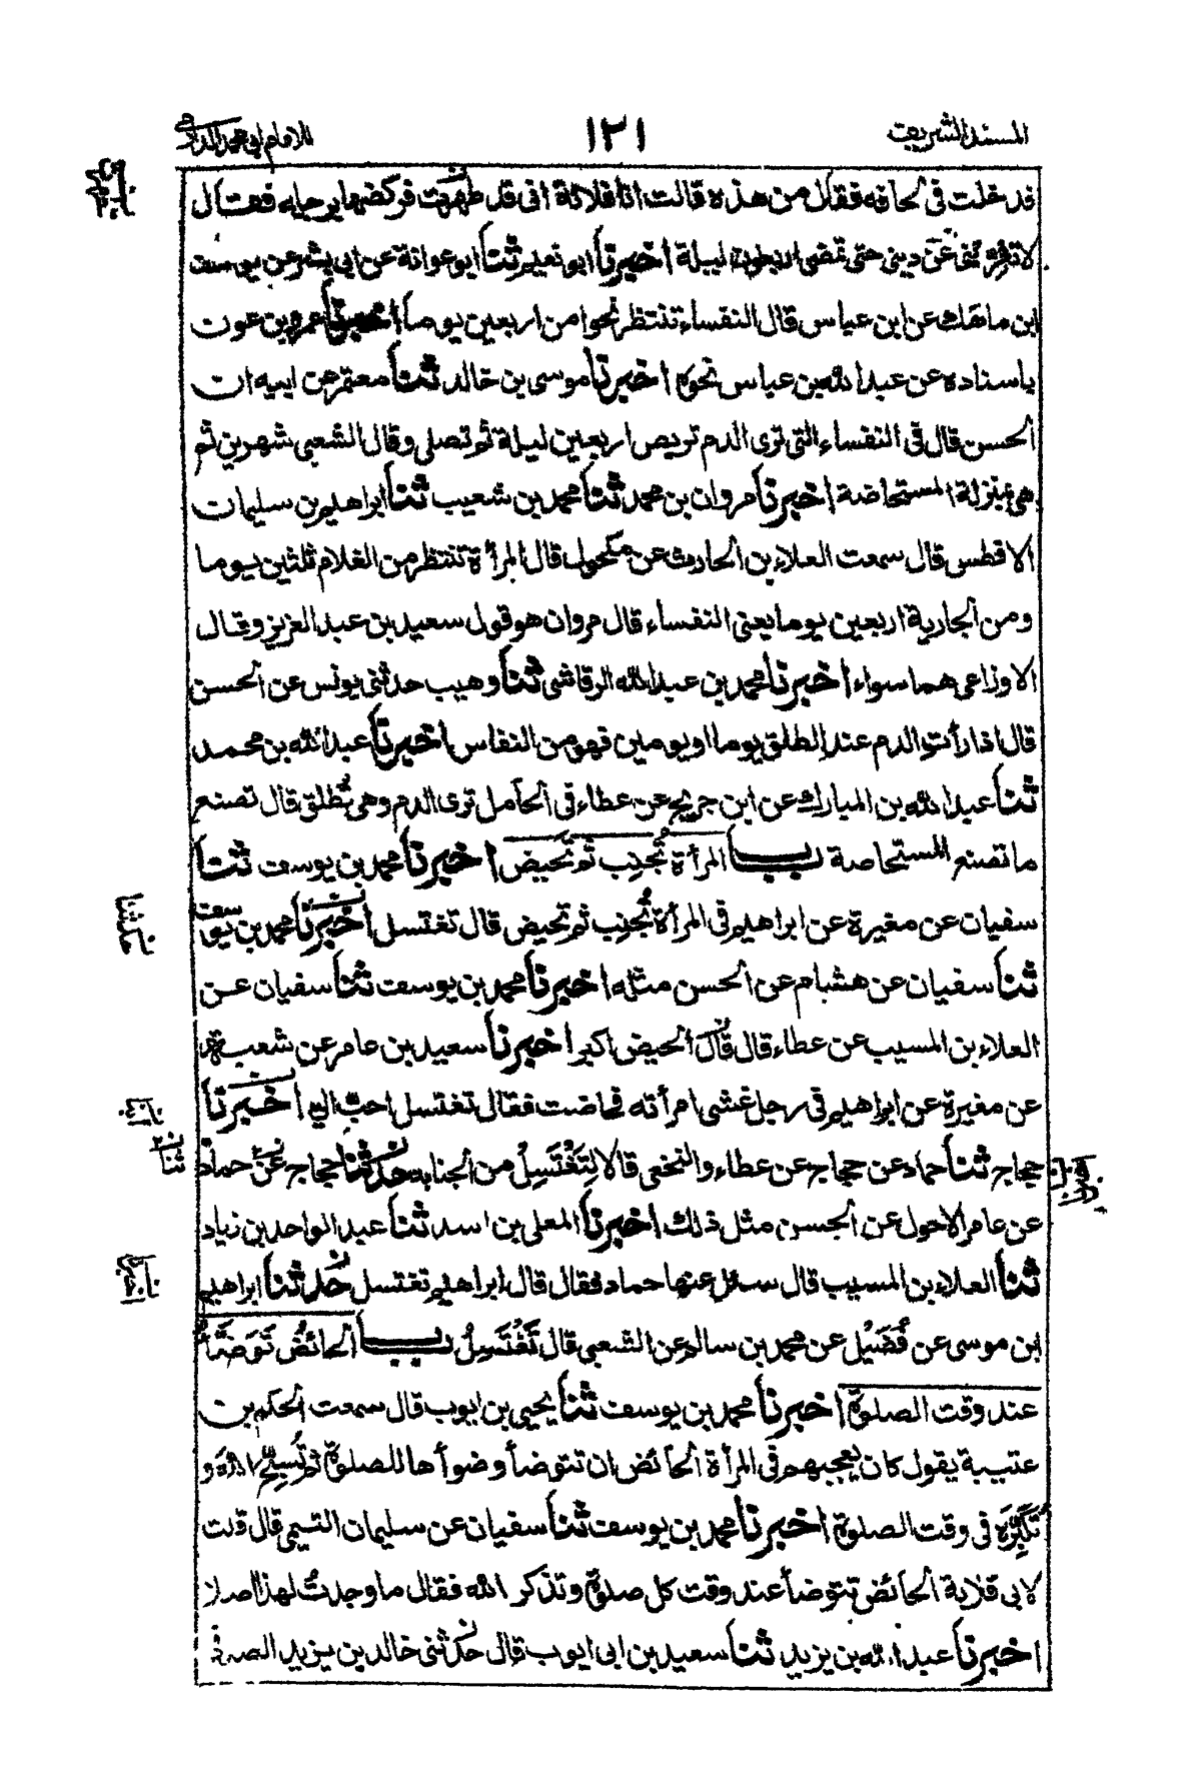 المسند الشريف ١٢١ للامام ابي محمد الدارمي
فدخلت في لحافه فقال من هذه قالت انا فلانة اني قد طهرت فركضها برجله فقال
لا تغريني عن ديني حتى تمضي اربعون ليلة اخبرنا ابو نعيم ثنا ابو عوانة عن ابي بشر عن يوسف
ابن ماهك عن ابن عباس قال النفساء تنتظر نحوا من اربعين يوما اخبرنا عمرو بن عون
باسناده عن عبد الله بن عباس نحوه اخبرنا موسى بن خالد ثنا معتمر عن ابيه ان
الحسن قال في النفساء التي ترى الدم تربص اربعين ليلة ثم تصلي وقال الشعبي شهرين ثم
هي بمنزلة المستحاضة اخبرنا مروان بن محمد ثنا محمد بن شعيب ثنا ابراهيم بن سليمان
الافطس قال سمعت العلاء بن الحارث عن مكحول قال المرأة تنتظر من الغلام ثلثين يوما
ومن الجارية اربعين يوما يعني النفساء قال مروان هو قول سعيد بن عبد العزيز وقال
الاوزاعي هما سواء اخبرنا محمد بن عبد الله الرقاشي ثنا وهيب حدثني يونس عن الحسن
قال اذا رأت الدم عند الطلق يوما او يومين فهو من النفاس اخبرنا عبد الله بن محمد
ثنا عبد الله بن المبارك عن ابن جريج عن عطاء في الحامل ترى الدم وهي تُطلق قال تصنع
ما تصنع المستحاضة باب المرأة تُجنِب ثم تَحيض اخبرنا محمد بن يوسف ثنا
سفيان عن مغيرة عن ابراهيم في المرأة تُجنِب ثم تحيض قال تغتسل اخبرنا محمد بن يوسف
ثنا سفيان عن هشام عن الحسن مثله اخبرنا محمد بن يوسف ثنا سفيان عن
العلاء بن المسيب عن عطاء قال قال الحيض اكبر اخبرنا سعيد بن عامر عن شعبة
عن مغيرة عن ابراهيم في رجل غشى امرأته فحاضت فقال تغتسل احبّ الي اخبرنا
حجاج ثنا حماد عن حجاج عن عطاء والنخعي قالا لِتَغْتَسِلْ من الجنابة حدثنا حجاج عن حماد
عن عامر الاحول عن الحسن مثل ذلك اخبرنا المعلى بن اسد ثنا عبد الواحد بن زياد
ثنا العلاء بن المسيب قال سئل عنها حماد فقال قال ابراهيم تغتسل حدثنا ابراهيم
ابن موسى عن فُضَيْل عن محمد بن سالم عن الشعبي قال تَغْتَسِلُ باب الحائضُ تَوَضَّأُ
عند وقت الصلوة اخبرنا محمد بن يوسف ثنا يحيى بن ايوب قال سمعت الحكم بن
عتيبة يقول كان يعجبهم في المرأة الحائض ان تتوضأ وضوأها للصلوة ثم تُسبّحُ الله و
تُكَبِّرَه في وقت الصلوة اخبرنا محمد بن يوسف ثنا سفيان عن سليمان التيمي قال قلت
لابي قلابة الحائض تتوضأ عند وقت كل صلوة وتذكر الله فقال ما وجدتُ لهذا اصلا
اخبرنا عبد الله بن يزيد ثنا سعيد بن ابي ايوب قال حدثني خالد بن يزيد الصدفي